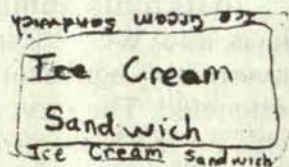 Ice Cream Sandwich
Ice Cream
Sandwich
Ice Cream Sandwich